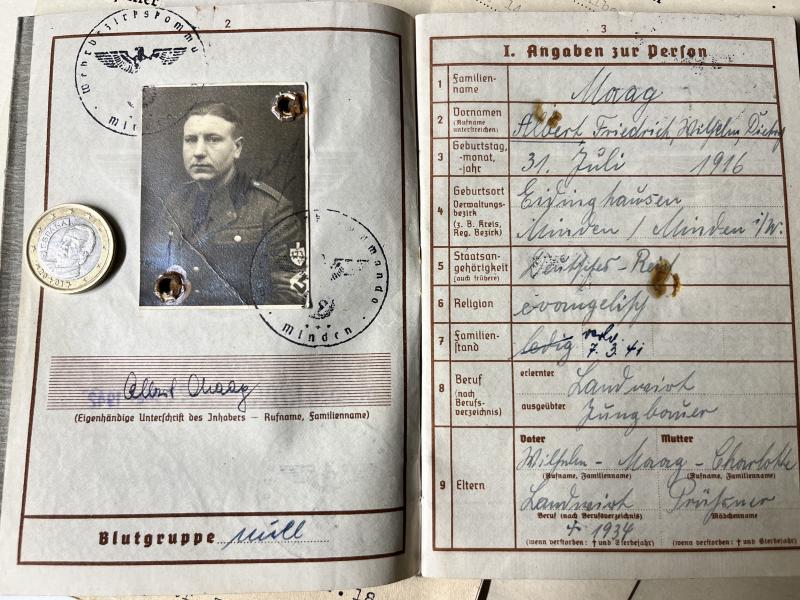 2
Wehrbezirkskomma
Minden
mando
Minden
ESPAÑA
Albert Maag
(Eigenhändige Unterschrift des Inhabers — Rufname, Familienname)
Blutgruppe null
3
I. Angaben zur Person
1 Familien-
name
Maag
2 Vornamen
(Rufname
unterstreichen)
Albert, Friedrich, Wilhelm,
3 Geburtstag,
-monat,
-jahr
31. Juli 1916
4 Geburtsort
Verwaltungs-
bezirk
(z. B. Kreis,
Reg. Bezirk)
Eidinghausen
Minden / Minden i/W.
5 Staatsan-
gehörigkeit
(auch frühere)
Deutsches-Reich
6 Religion
evangelisch
7 Familien-
stand
ledig verh.
7. 3. 41
8 Beruf
(nach
Berufs-
verzeichnis)
erlernter
Landwirt
ausgeübter
Jungbauer
9 Eltern
Vater Mutter
Wilhelm - Maag - Charlotte
(Rufname, Familienname) (Rufname, Familienname)
Landwirt Prüßner
Beruf (nach Berufsverzeichnis) Mädchenname
† 1934
(wenn verstorben: † und Sterbejahr) (wenn verstorben: † und Sterbejahr)
18